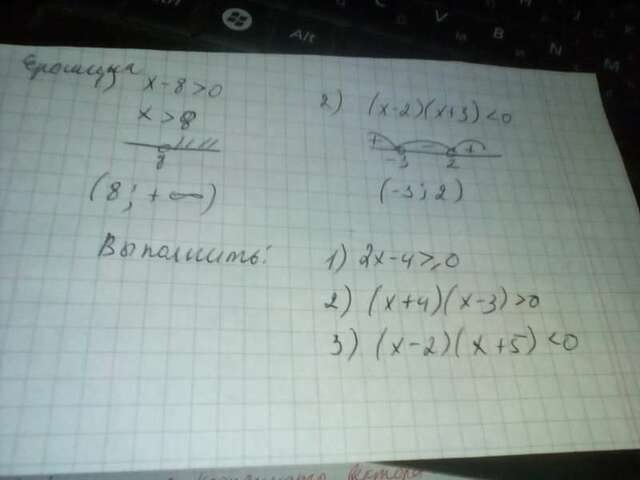 Alt
V
B
N
M
x-8>0
x>8
8
(8; +∞)
2) (x-2)(x+3)<0
+ - +
-3 2
(-3; 2)
Выполнить:
1) 2x-4≥0
2) (x+4)(x-3)>0
3) (x-2)(x+5)<0
вектора